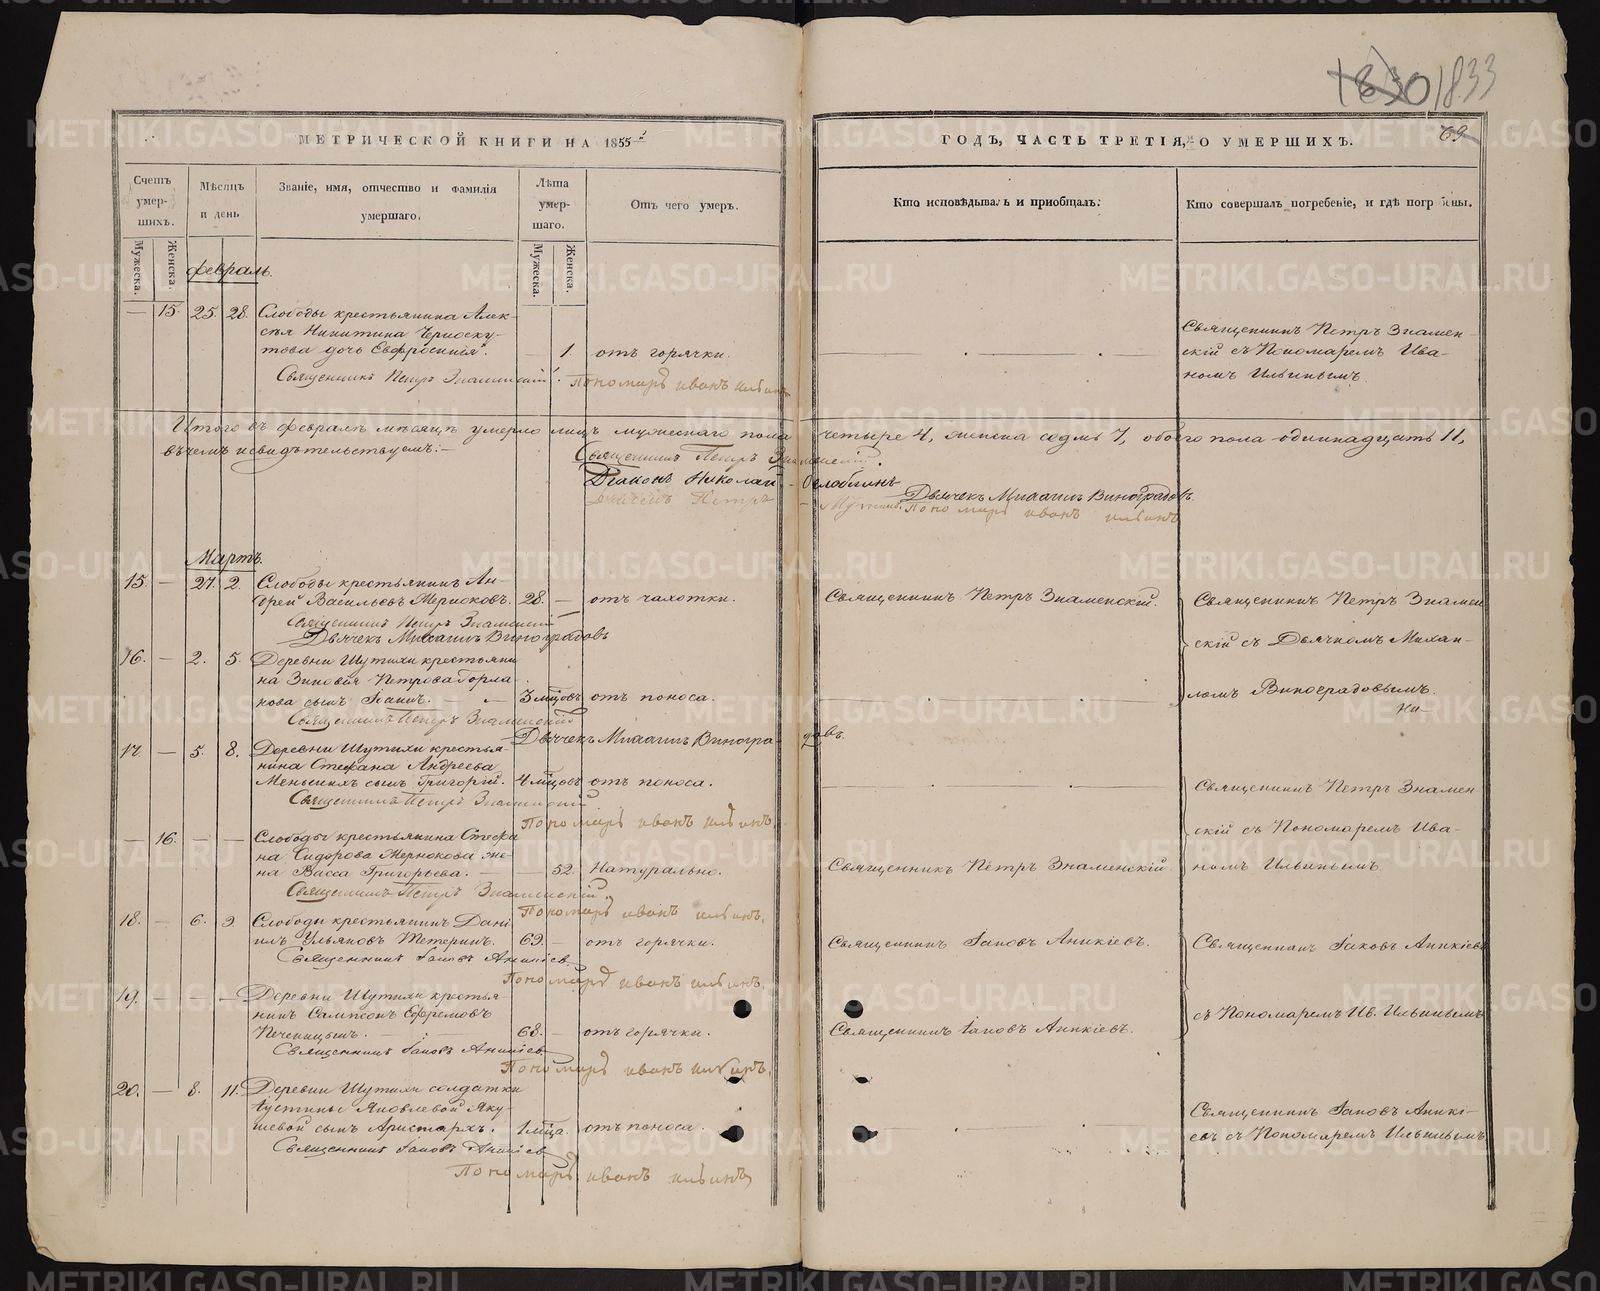 1830 1833
МЕТРИЧЕСКОЙ КНИГИ НА 1855й
ГОДЪ, ЧАСТЬ ТРЕТІЯ, О УМЕРШИХЪ.
69
Счетъ умершихъ.
Мѣсяцъ и день
Званіе, имя, отчество и фамилія умершаго.
Лѣта умершаго.
Отъ чего умеръ.
Кто исповѣдывалъ и пріобщалъ.
Кто совершалъ погребеніе, и гдѣ погребены.
Мужеска.
Женска.
Мужеска.
Женска.
Февраль.
— 15. 25. 28. Слободы крестьянина Алек-
сѣя Никитина Черноску-
това дочь Евфросинія. 1. отъ горячки.
Священникъ Петръ Знамен-
скій съ Пономаремъ Ива-
номъ Ильинымъ.
Священникъ Петръ Знаменскій. Пономарь иванъ ильинъ
Итого въ февралѣ мѣсяцѣ умерло лицъ мужескаго пола четыре 4, женска седмь 7, обоего пола одиннадцать 11,
въ чемъ и свидѣтельствуемъ:—
Священникъ Петръ Знаменскій.
Діаконъ Николай
Дьячекъ Михаилъ Виноградовъ.
Пономарь иванъ ильинъ
Мартъ.
15. — 27. 2. Слободы крестьянинъ Ан-
дрей Васильевъ Жерноковъ. 28. — отъ чахотки. Священникъ Петръ Знаменскій.
Священникъ Петръ Знамен
скій съ Дьячкомъ Михаи-
ломъ Виноградовымъ.
Священникъ Петръ Знаменскій
Дьячекъ Михаилъ Виноградовъ
16. — 2. 5. Деревни Шутихи крестьяни
на Зиновія Петрова Горла
нова сынъ Іоаннъ. 3 мѣцовъ отъ поноса.
Священникъ Петръ Знаменскій
Дьячекъ Михаилъ Виноградовъ.
17. — 5. 8. Деревни Шутихи крестья-
нина Стефана Андреева
Меньшихъ сынъ Григорій. 4 мѣцовъ отъ поноса.
Священникъ Петръ Знамен
скій съ Пономаремъ Ива-
номъ Ильинымъ.
Священникъ Петръ Знаменскій
Пономарь иванъ ильинъ.
— 16. — — Слободы крестьянина Стефа
на Сидорова Жернокова же-
на Васса Григорьева. — 52. Натурально. Священникъ Петръ Знаменскій
Священникъ Петръ Знаменскій.
Пономарь иванъ ильинъ.
18. — 6. 9 Слободы крестьянинъ Дані
илъ Ульяновъ Тетеринъ. 69. — отъ горячки. Священникъ Іаковъ Аникіевъ.
Священникъ Іаковъ Аникіевъ
съ Пономаремъ Ив. Ильинымъ
Священникъ Іаковъ Аникіев
Пономарь иванъ ильинъ.
19. — — — Деревни Шутихи крестья-
нинъ Сампсонъ Ефремовъ
Печеницынъ. 68. — отъ горячки. Священникъ Іаковъ Аникіевъ.
Священникъ Іаковъ Аникіев
Пономарь иванъ ильинъ.
20. — 8. 11. Деревни Шутихи солдатки
Іустины Яковлевой Яку-
шевой сынъ Аристархъ. 1 мѣца. отъ поноса.
Священникъ Іаковъ Аникі-
евъ съ Пономаремъ Ильинымъ
Священникъ Іаковъ Аникіев
Пономарь иванъ ильинъ
METRIKI.GASO-URAL.RU